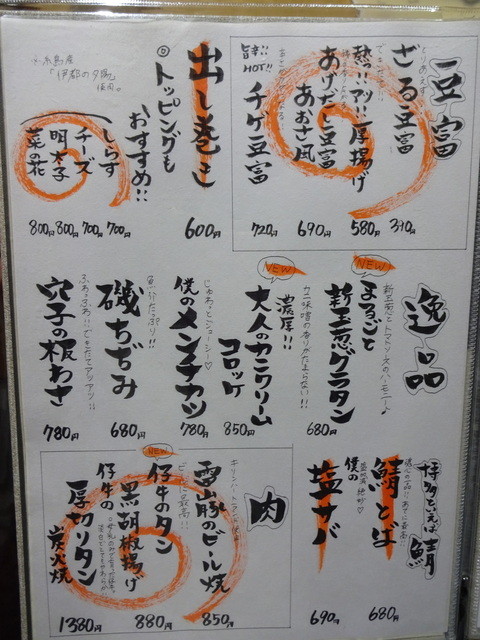 豆富
とりあえず
ざる豆富
390円
熱!!アツ!!厚揚げ
580円
あげだし豆富
あおさ風
690円
旨辛!!
HOT!!
チゲ豆富
720円
出し巻き
600円
◎トッピングも
おすすめ!!
しらす
700円
チーズ
700円
明太子
800円
菜の花
800円
糸島産
「伊都の夕陽」
使用。
逸品
新玉葱とトマトソースのハーモニー♪
まるごと
新玉葱グラタン
680円
NEW
カニ味噌の香りがたまらない!!
濃厚!!
大人のカニクリーム
コロッケ
850円
NEW
じゅわっとジューシー♡
僕のメンチカツ
780円
魚介たっぷり!!
磯ちぢみ
680円
ふわっふわ!!できたてアツアツ!!
穴子の板わさ
780円
博多といえば
鯖
鯖とば
680円
僕の
塩サバ
690円
肉
雲山豚のビール焼
850円
NEW
仔牛のタン
黒胡椒揚げ
880円
仔牛の
厚切りタン
炭火焼
1380円